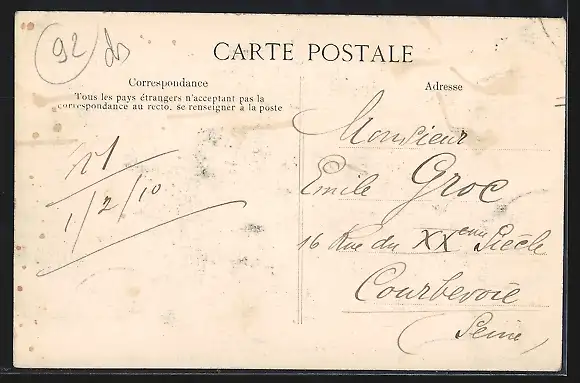 92
CARTE POSTALE
Correspondance
Tous les pays étrangers n'acceptent pas la
correspondance au recto, se renseigner à la poste
Adresse
1/2/10
Monsieur
Emile Groc
16 Rue du XXème Siècle
Courbevoie
(Seine)